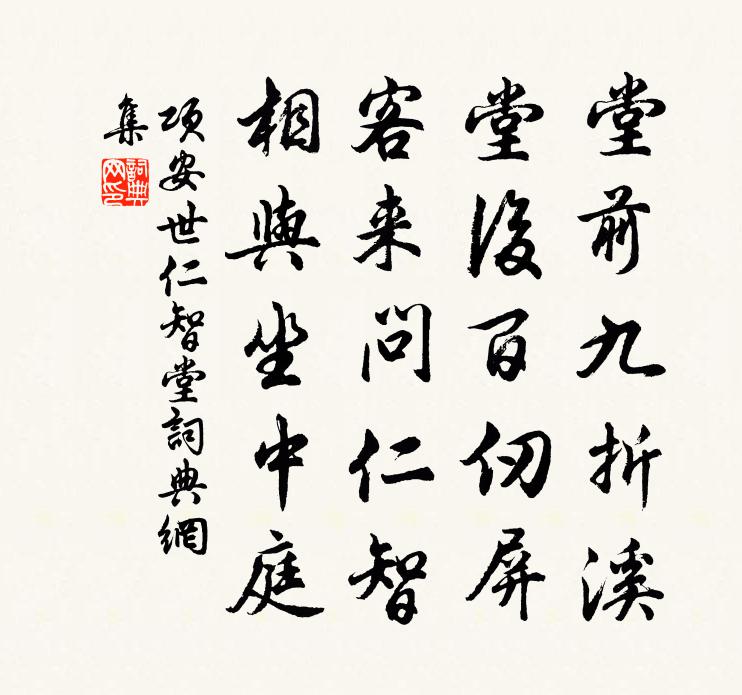 堂前九折溪
堂後百仞屏
客来問仁智
相與坐中庭
項安世仁智堂詞典網
集
詞典
网印